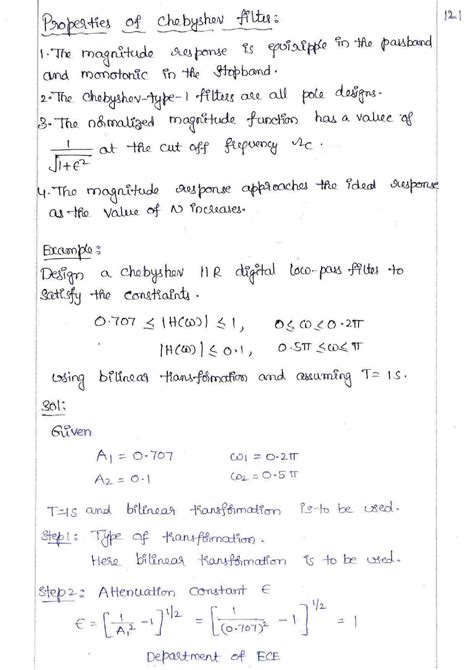 121
Properties of Chebyshev filter:
1. The magnitude response is equiripple in the passband
and monotonic in the stopband.
2. The chebyshev-type-1 filters are all pole designs.
3. The normalized magnitude function has a value of
1/√(1+ε²) at the cut off frequency Ωc.
4. The magnitude response approaches the ideal response
as the value of N increases.
Example:
Design a chebyshev IIR digital low-pass filter to
satisfy the constraints.
0.707 ≤ |H(ω)| ≤ 1, 0 ≤ ω ≤ 0.2π
|H(ω)| ≤ 0.1, 0.5π ≤ ω ≤ π
using bilinear transformation and assuming T= 1s.
Sol:
Given
A1 = 0.707 ω1 = 0.2π
A2 = 0.1 ω2 = 0.5π
T=1s and bilinear transformation is to be used.
Step1: Type of transformation.
Here bilinear transformation is to be used.
Step2: Attenuation Constant ε
ε = [1/A1² - 1]^1/2 = [1/(0.707)² - 1]^1/2 = 1
Department of ECE